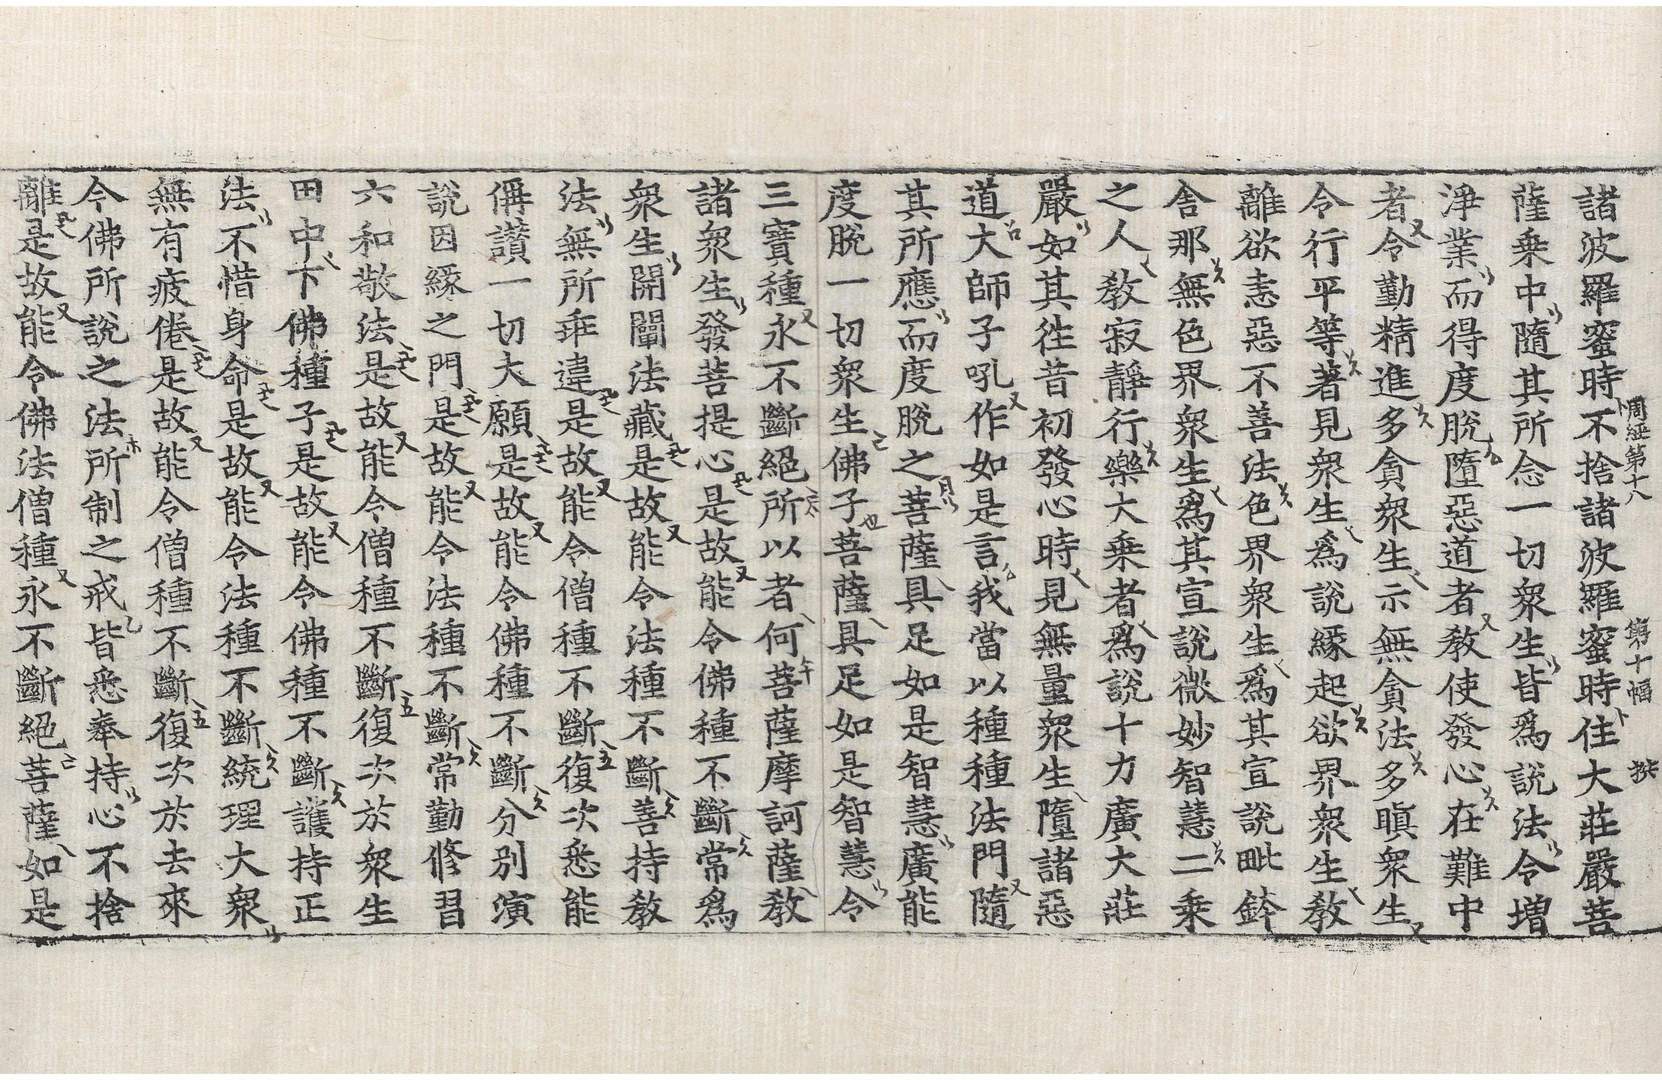 周經第十八 第十幅
諸波羅蜜時不捨諸波羅蜜時住大莊嚴菩
薩乗中隨其所念一切衆生皆爲說法令增
淨業而得度脫墮惡道者教使發心在難中
者令勤精進多貪衆生示無貪法多瞋衆生
令行平等著見衆生爲說緣起欲界衆生教
離欲恚惡不善法色界衆生爲其宣說毗鉢
舍那無色界衆生爲其宣說微妙智慧二乗
之人教寂靜行樂大乗者爲說十力廣大莊
嚴如其往昔初發心時見無量衆生墮諸惡
道大師子吼作如是言我當以種種法門隨
其所應而度脫之菩薩具足如是智慧廣能
度脫一切衆生佛子菩薩具足如是智慧令
三寶種永不斷絕所以者何菩薩摩訶薩教
諸衆生發菩提心是故能令佛種不斷常爲
衆生開闡法藏是故能令法種不斷善持教
法無所乖違是故能令僧種不斷復次悉能
偁讚一切大願是故能令佛種不斷分別演
說因緣之門是故能令法種不斷常勤修習
六和敬法是故能令僧種不斷復次於衆生
田中下佛種子是故能令佛種不斷護持正
法不惜身命是故能令法種不斷統理大衆
無有疲倦是故能令僧種不斷復次於去來
今佛所說之法所制之戒皆悉奉持心不捨
離是故能令佛法僧種永不斷絕菩薩如是